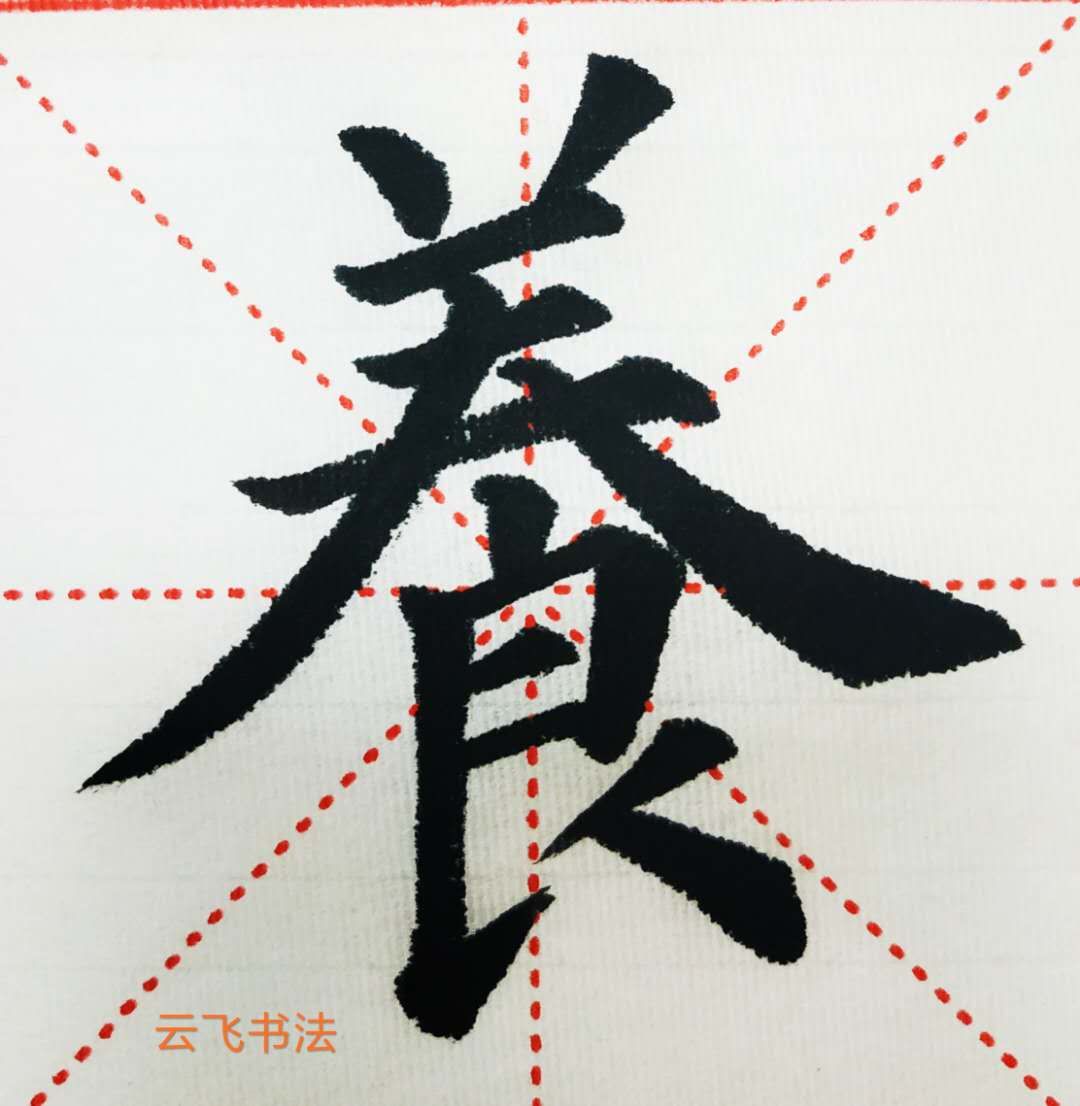 養
云飞书法